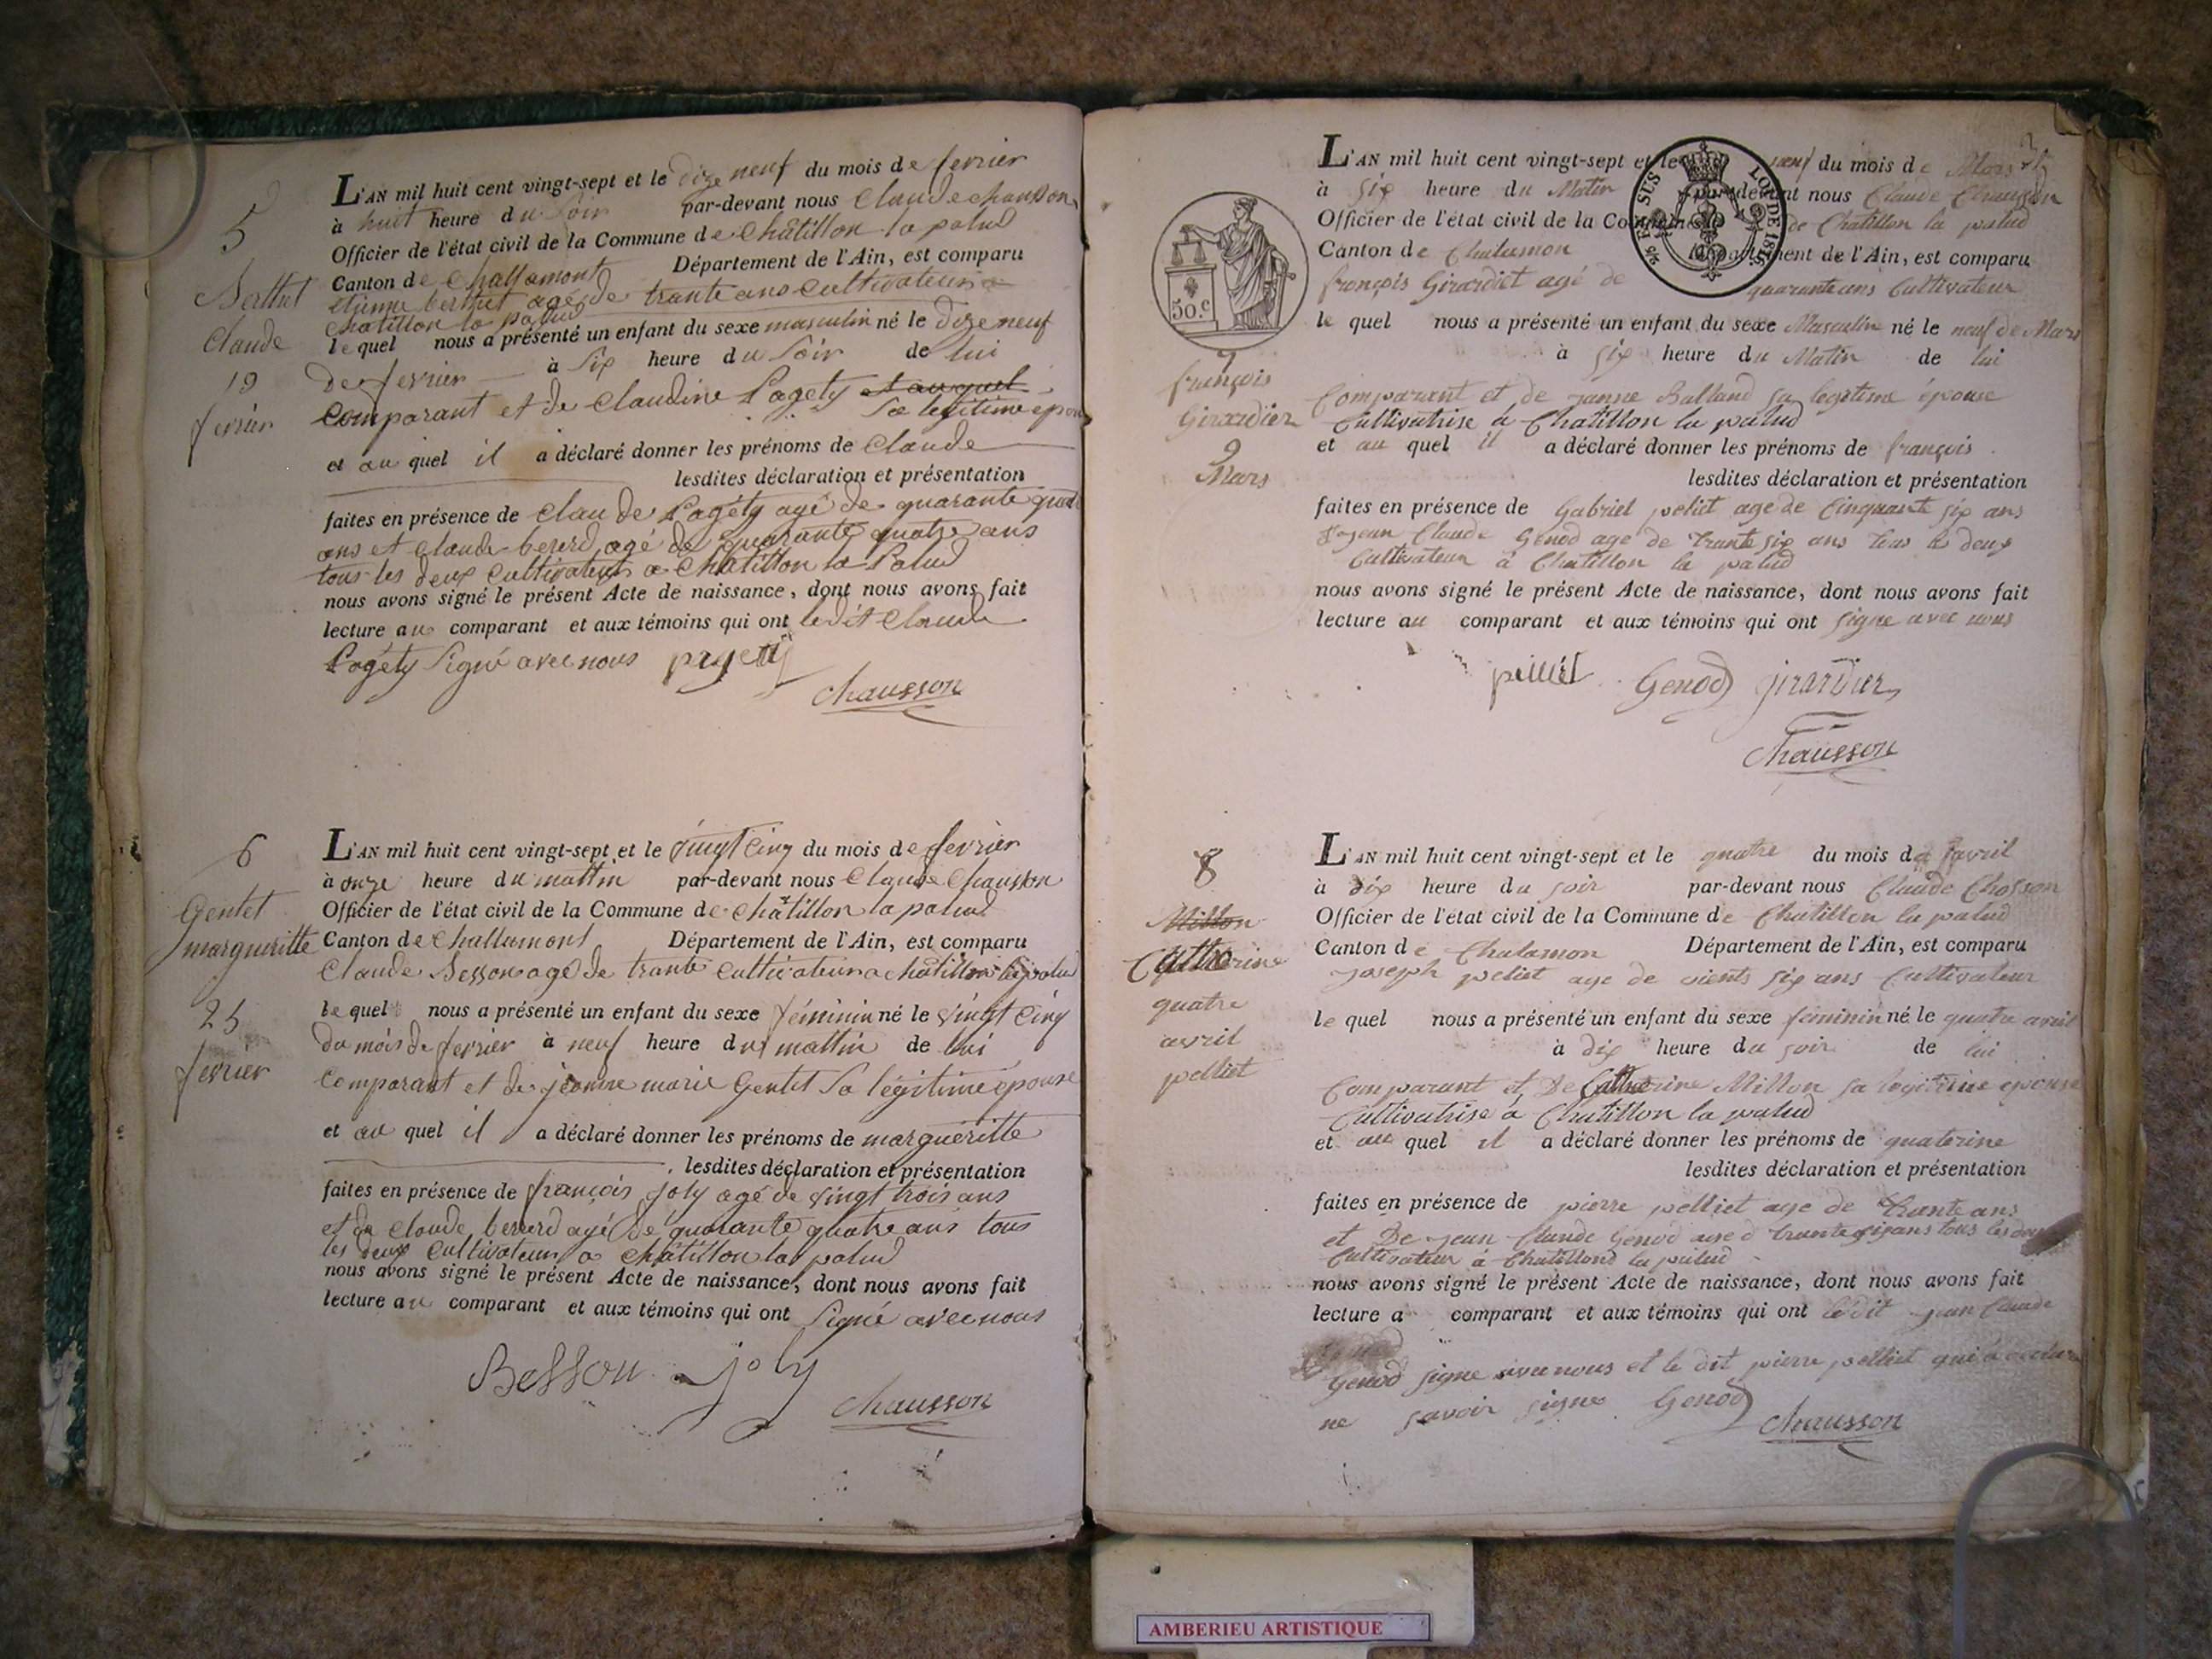 5
Berthet
Claude
19
fevrier
L'AN mil huit cent vingt-sept et le dize neuf du mois de fevrier
à huit heure du Soir par-devant nous Claude chausson
Officier de l'état civil de la Commune de Châtillon la palud
Canton de Challamont Département de l'Ain, est comparu
etienne berthet agé de trante ans Cultivateur a
Chatillon la palud
le quel nous a présenté un enfant du sexe masculin né le Dize neuf
de fevrier à Six heure du Soir de lui
Comparant et de Claudine Pagety et auquel
Sa legitime epouse
et au quel il a déclaré donner les prénoms de Claude
lesdites déclaration et présentation
faites en présence de Claude Pagéty agé de quarante quatre
ans et Claude bererd agé de quarante quatre ans
tous les deux Cultivateurs a Chatillon la Palud
nous avons signé le présent Acte de naissance, dont nous avons fait
lecture au comparant et aux témoins qui ont ledit Claude
Pagéty Signé avec nous pagety
chausson
6
Gentet
margueritte
25
fevrier
L'AN mil huit cent vingt-sept et le vingt Cinq du mois de fevrier
à onze heure du mattin par-devant nous Claude Chausson
Officier de l'état civil de la Commune de Châtillon la palud
Canton de Challamont Département de l'Ain, est comparu
Claude Besson agé de trante Cultivateur a Châtillon la palud
le quel nous a présenté un enfant du sexe féminin né le vingt Cinq
du mois de fevrier à neuf heure du mattin de lui
Comparant et de jeanne marie Gentet Sa légitime épouse
et au quel il a déclaré donner les prénoms de marguéritte
lesdites déclaration et présentation
faites en présence de françois joly agé de vingt trois ans
et de Claude bererd agé de quarante quatre ans tous
les deux Cultivateurs a Châtillon la palud
nous avons signé le présent Acte de naissance, dont nous avons fait
lecture au comparant et aux témoins qui ont Signé avec nous
Besson joly
chausson
50.c
LOI DE 1816
EN SUS
7
françois
Girardier
9
Mars
L'AN mil huit cent vingt-sept et le neuf du mois de Mars
à six heure du Matin par-devant nous Claude Chausson
Officier de l'état civil de la Commune de Chatillon la palud
Canton de Chalamon Département de l'Ain, est comparu
françois Girardiet agé de quarante ans Cultivateur
le quel nous a présenté un enfant du sexe Masculin né le neuf de Mars
à six heure du Matin de lui
Comparant et de janne Balland sa legitime épouse
Cultivatrise à Chatillon la palud
et au quel il a déclaré donner les prénoms de françois
lesdites déclaration et présentation
faites en présence de Gabriel peliet age de Cinquante six ans
jean Claude Genod age de trante six ans tous les deux
Cultivateur à Chatillon la palud
nous avons signé le présent Acte de naissance, dont nous avons fait
lecture au comparant et aux témoins qui ont signe avec nous
Genod girardier
Chausson
8
Millon
Catherine
quatre
avril
pelliet
L'AN mil huit cent vingt-sept et le quatre du mois de avril
à dix heure du soir par-devant nous Claude Chosson
Officier de l'état civil de la Commune de Chatillon la palud
Canton de Chalamon Département de l'Ain, est comparu
joseph peliet age de vients six ans Cultivateur
le quel nous a présenté un enfant du sexe féminin né le quatre avril
à dix heure du soir de lui
Comparant et De Catherine Millon sa legitime epouse
Cultivatrise à Chatillon la palud
et au quel il a déclaré donner les prénoms de quaterine
lesdites déclaration et présentation
faites en présence de pierre pelliet age de trante ans
et De jean Claude Genod age d trante six ans tous les deux
Cultivateur à Chatillond la palud
nous avons signé le présent Acte de naissance, dont nous avons fait
lecture a comparant et aux témoins qui ont ledit jean Claude
Genod signe avec nous et le dit pierre pelliet qui a declare
ne savoir signe Genod
chausson
AMBERIEU ARTISTIQUE